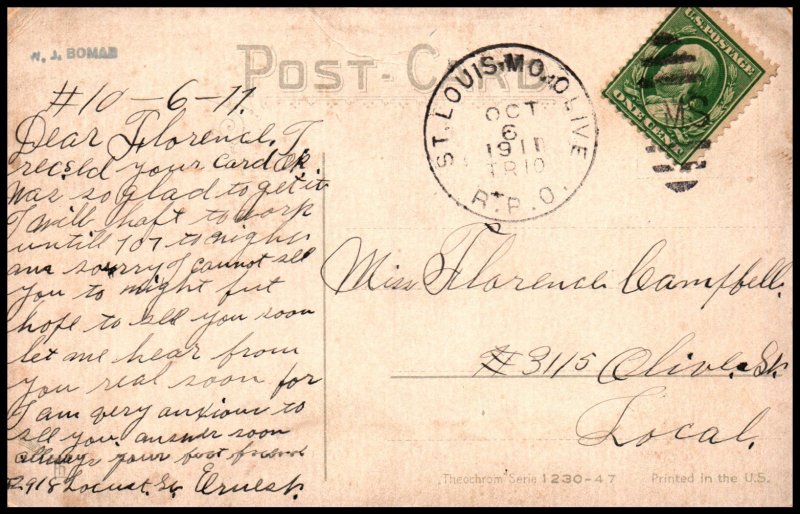 N. J. BOMAR
POST-CARD
ST. LOUIS, MO. OLIVE
OCT
6
1911
TR 10
R.P.O.
U.S. POSTAGE
ONE CENT
MS
#10-6-11.
Dear Florence. I
rec,sd your card O.k.
was so glad to get it
I will haft to work
untill 10 to night
am sorry I cannot see
you to night but
hope to see you soon
let me hear from
you real soon for
I am very anxious to
see your answer soon
allways your best friend
2918 Locust. St. Ernest.
Miss Florence Campbell.
#3115 Olive. St.
Local.
Theochrom Serie 1230-47
Printed in the U.S.